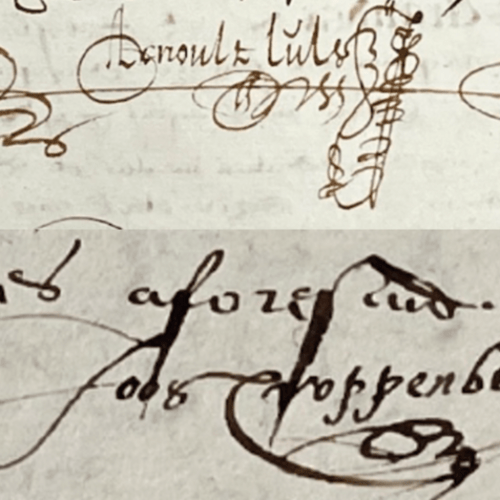 Arnoult Luls
es aforescus.
Joos Croppenb